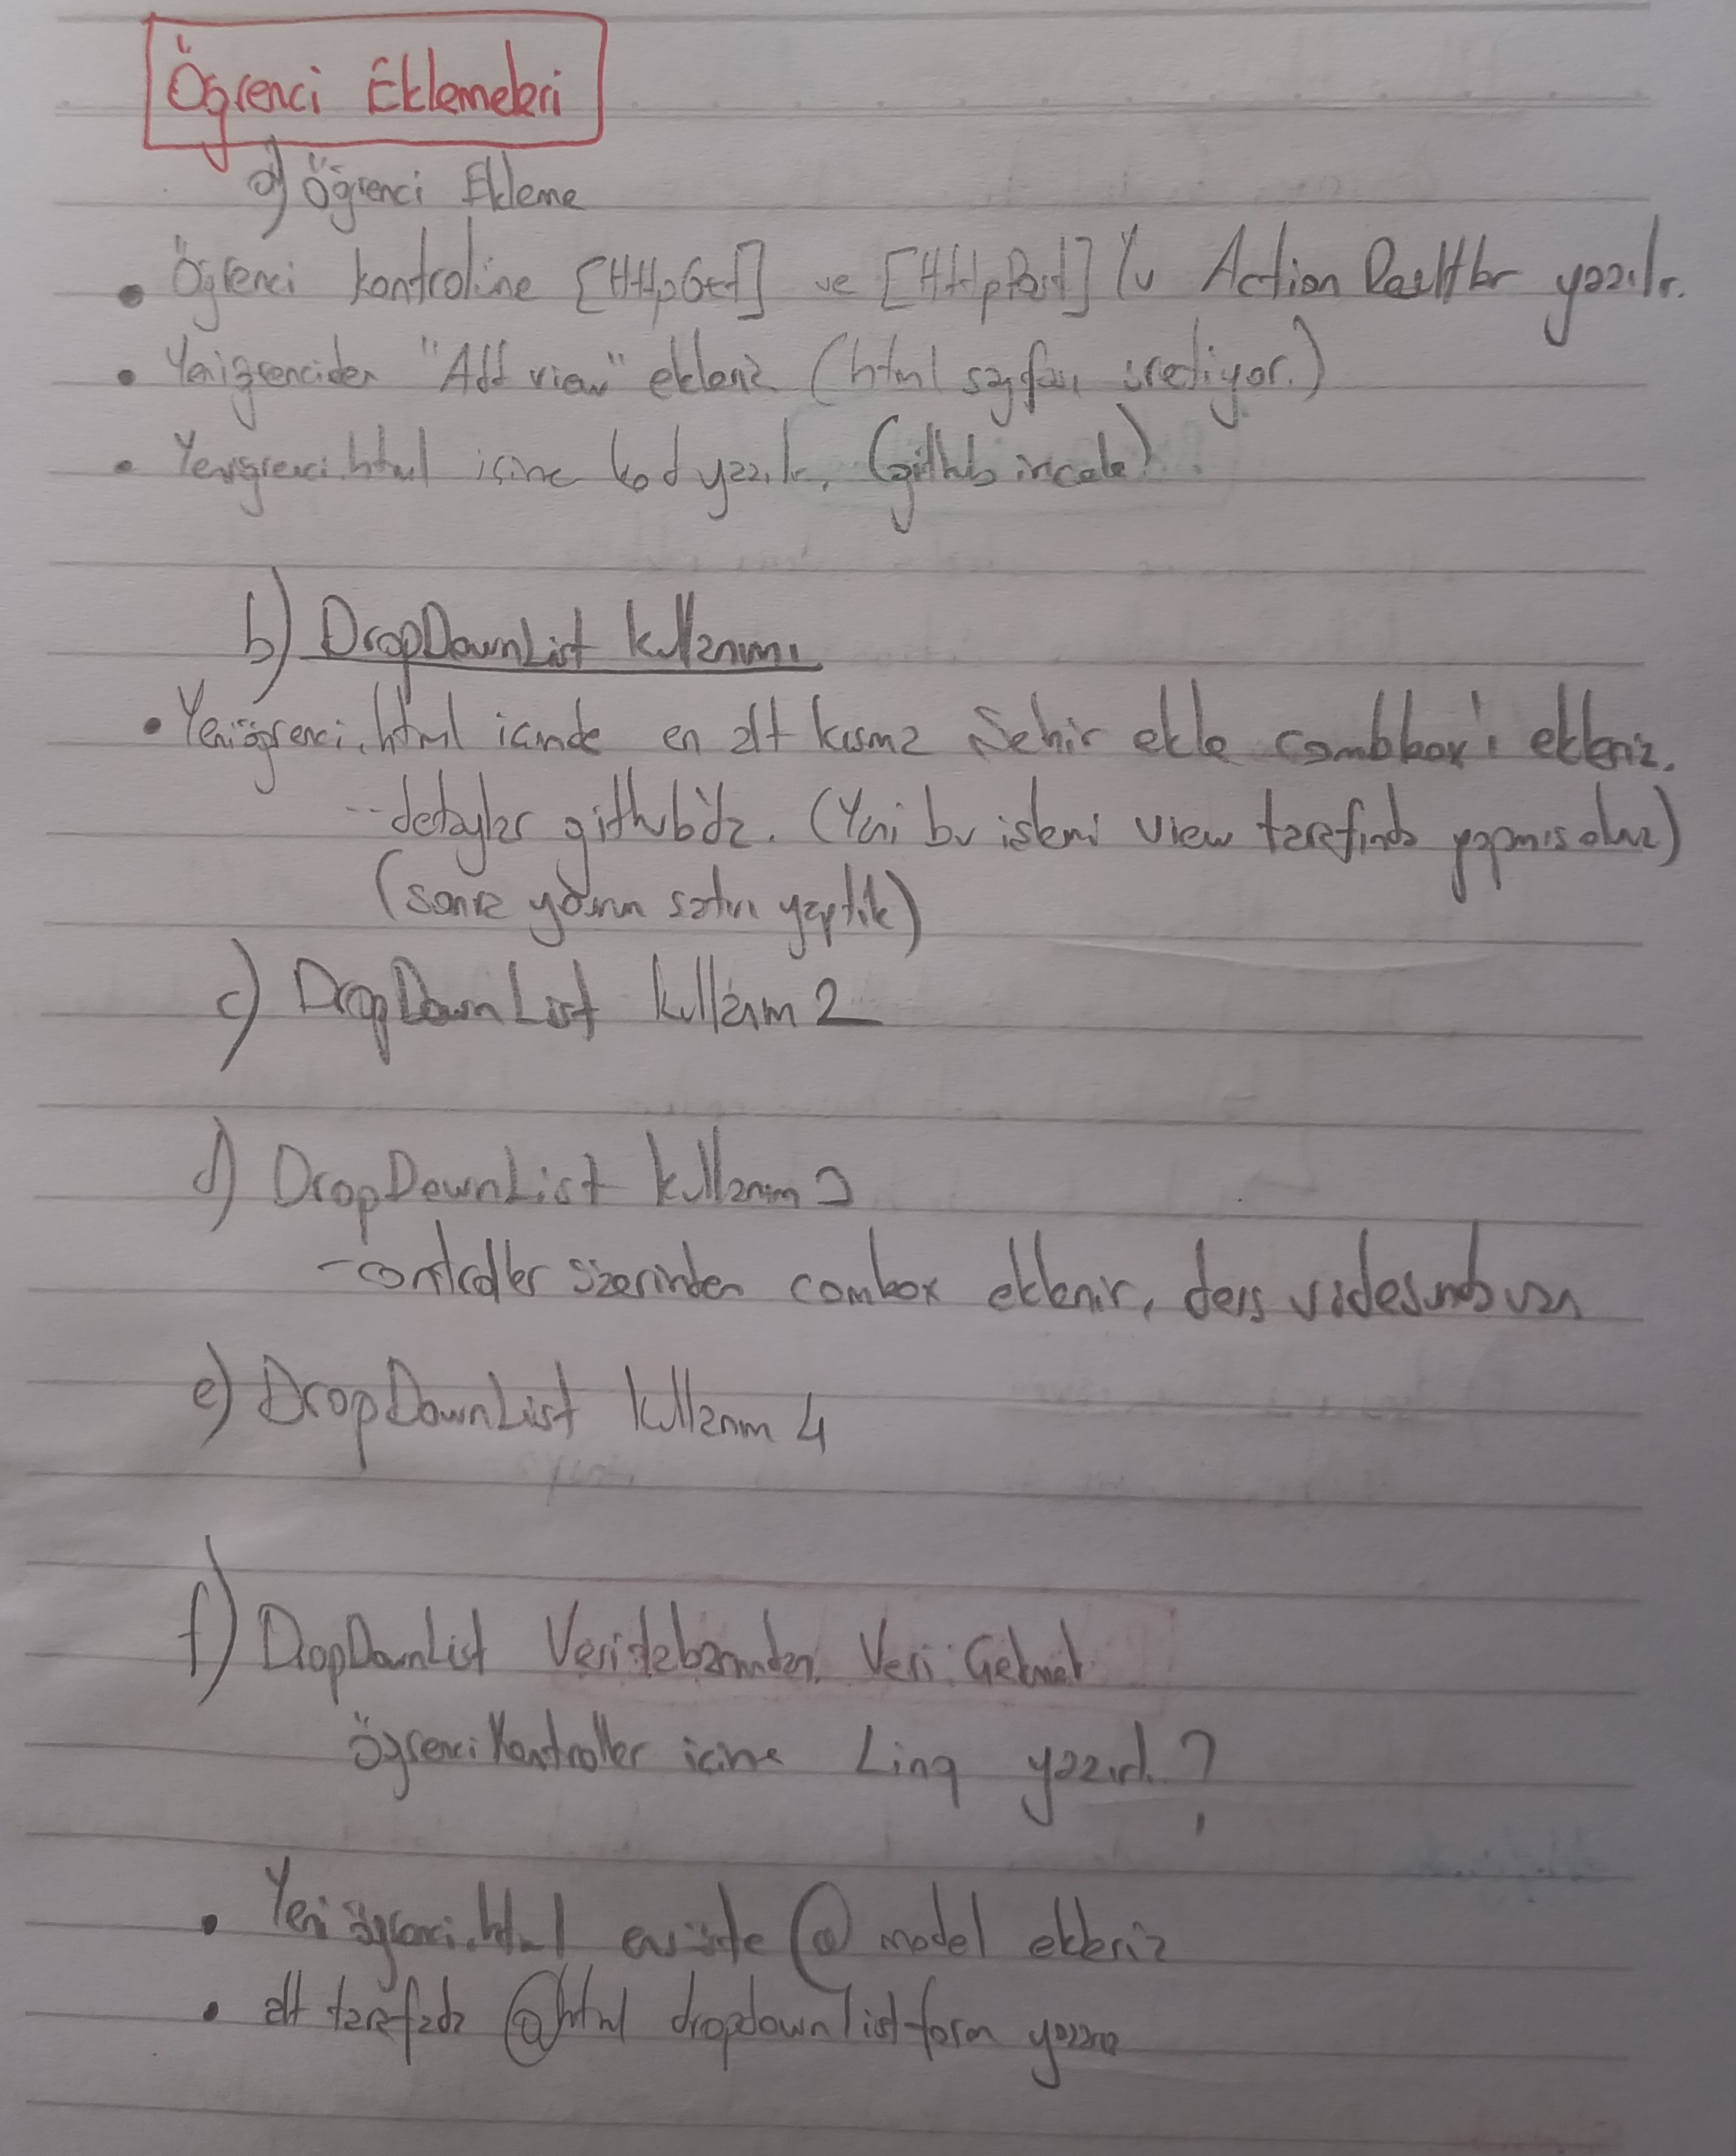 Öğrenci Eklemeleri
a) Öğrenci Ekleme
• Öğrenci kontroline [HttpGet] ve [HttpPost]'lu Action Resultlar yazılır.
• Yeniğrenciden "Add view" ekleriz (html sayfası üretiyor.)
• Yeniğrenci.html içine kod yazılır. (github incele)
b) DropDownList kullanımı
• Yeniöğrenci.html içinde en alt kısma Şehir ekle combbox'ı ekleriz.
-- detaylar github'da. (Yani bu işlemi view tarafında yapmış oluruz)
(sonra yorum satırı yaptık)
c) DropDownList kullanım 2
d) DropDownList kullanım 3
- controller üzerinden combox eklenir, ders videosunda var
e) DropDownList kullanım 4
f) DropDownList Veritabanından Veri Getirmek
öğrenci Kontroller içine Linq yazılır. ?
• Yeni öğrenci.html en üste @ model ekleriz
• alt tarafada @html dropdownlistform yazarız